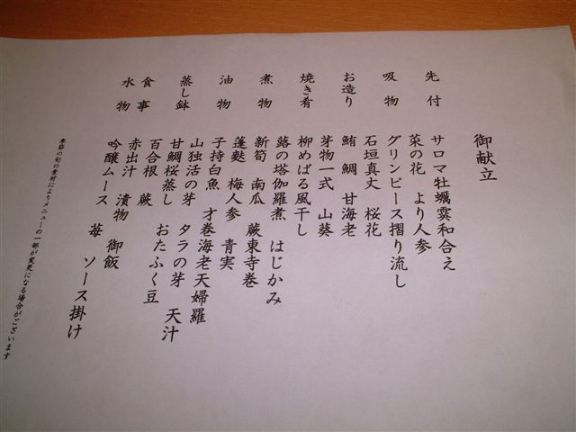 御献立
先付
サロマ牡蠣霙和合え
菜の花 より人参
吸物
グリンピース摺り流し
石垣真丈 桜花
お造り
鮪 鯛 甘海老
芽物一式 山葵
焼き肴
柳めばる風干し
蕗の塔伽羅煮 はじかみ
煮物
新筍 南瓜 蕨東寺巻
蓬麩 梅人参 青実
油物
子持白魚 才巻海老天婦羅
山独活の芽 タラの芽 天汁
蒸し鉢
甘鯛桜蒸し
百合根 蕨 おたふく豆
食事
赤出汁 漬物 御飯
水物
吟醸ムース 苺 ソース掛け
季節の旬の素材によりメニューの一部が変更になる場合がございます